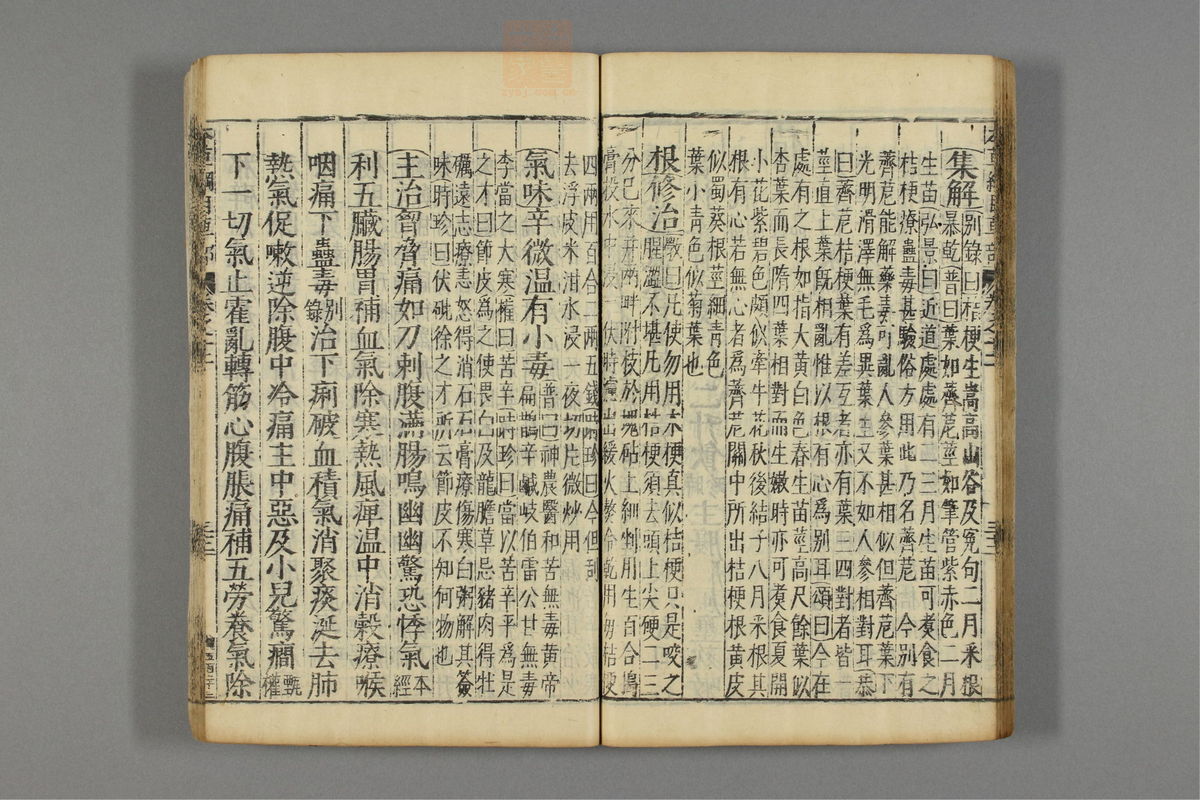 集解別錄曰桔梗生嵩高山谷及冤句二月采根
暴乾普曰葉如薺苨莖如筆管紫赤色二月
生苗弘景曰近道處處有二三月生苗可煮食之
桔梗療蠱毒甚驗俗方用此乃名薺苨今別有
薺苨能解藥毒可亂人參葉甚相似但薺苨葉下
光明滑澤無毛為異葉生又不如人參相對耳恭
曰薺苨桔梗葉有差互者亦有葉三四對者皆一
莖直上葉既相亂惟以根有心為別耳頌曰今在
處有之根如指大黃白色春生苗莖高尺餘葉似
杏葉而長隋四葉相對而生嫩時亦可煮食夏開
小花紫碧色頗似牽牛花秋後結子八月采根其
根有心若無心者為薺苨關中所出桔梗根黃皮
似蜀葵根莖細青色
葉小青色似菊葉也
根修治斅曰凡使勿用木梗真似桔梗只是咬之
腥澀不堪凡用桔梗須去頭上尖硬二三
分已來并兩畔附枝於槐砧上細剉用生百合搗
膏投水中浸一伏時濾出緩火熬令乾用每桔梗
四兩用百合二兩五錢時珍曰今但刮
去浮皮米泔水浸一夜切片微炒用
氣味辛微溫有小毒普曰神農醫和苦無毒黃帝
扁鵲辛鹹岐伯雷公甘無毒
李當之大寒權曰苦辛時珍曰當以苦辛平為是
之才曰節皮為之使畏白及龍膽草忌豬肉得牡
礪遠志療恚怒得消石石膏療傷寒白粥解其簽
味時珍曰伏硯徐之才所云節皮不知何物也
主治胷脅痛如刀刺腹滿腸鳴幽幽驚恐悸氣本經
利五臟腸胃補血氣除寒熱風痺溫中消穀療喉
咽痛下蠱毒別錄治下痢破血積氣消聚痰涎去肺
熱氣促嗽逆除腹中冷痛主中惡及小兒驚癎甄權
下一切氣止霍亂轉筋心腹脹痛補五勞養氣除